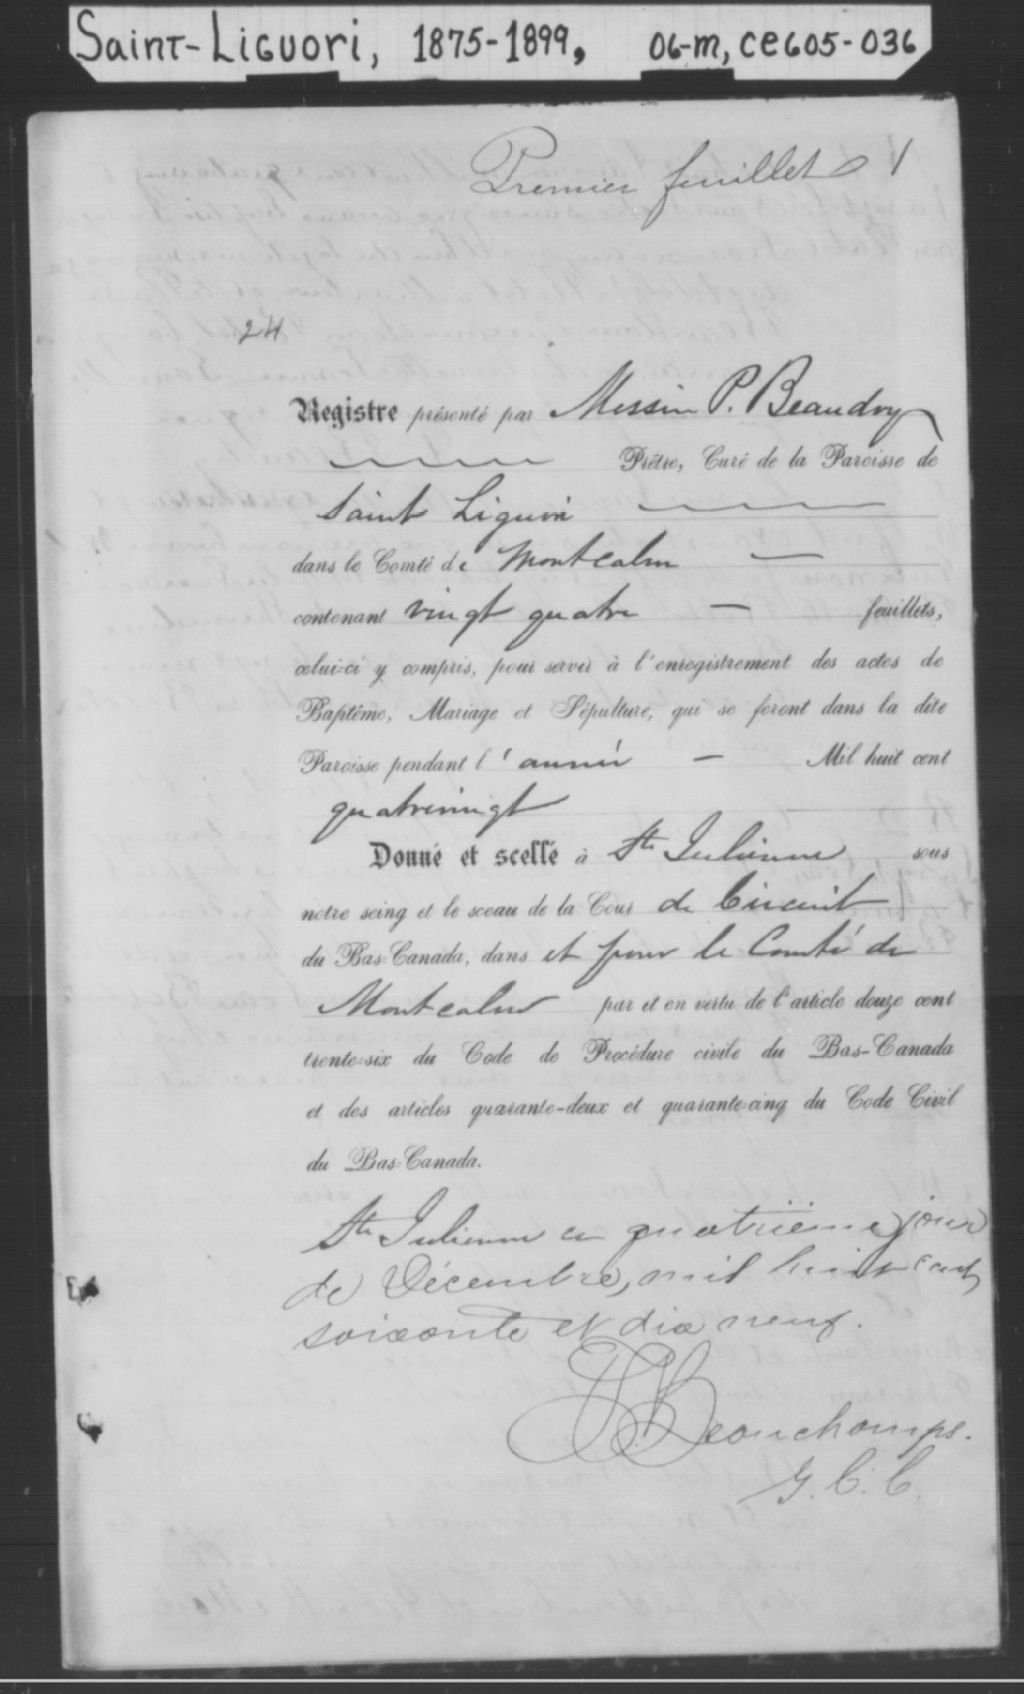 Saint-Liguori, 1875-1899, 06-m, ce605-036
Premier feuillet 1
24
Registre présenté par Messire P. Beaudry
Prêtre, Curé de la Paroisse de
Saint Liguori
dans le Comté de Montcalm
contenant vingt quatre feuillets,
celui-ci y compris, pour servir à l'enregistrement des actes de
Baptême, Mariage et Sépulture, qui se feront dans la dite
Paroisse pendant l'année Mil huit cent
quatrevingt
Donné et scellé à Ste Julienne sous
notre seing et le sceau de la Cour de Circuit
du Bas-Canada, dans et pour le Comté de
Montcalm par et en vertu de l'article douze cent
trente-six du Code de Procédure civile du Bas-Canada
et des articles quarante-deux et quarante-cinq du Code Civil
du Bas-Canada.
Ste Julienne ce quatrième jour
de Décembre, mil huit cent
soixante et dix neuf.
Beauchamps.
G. C. C.